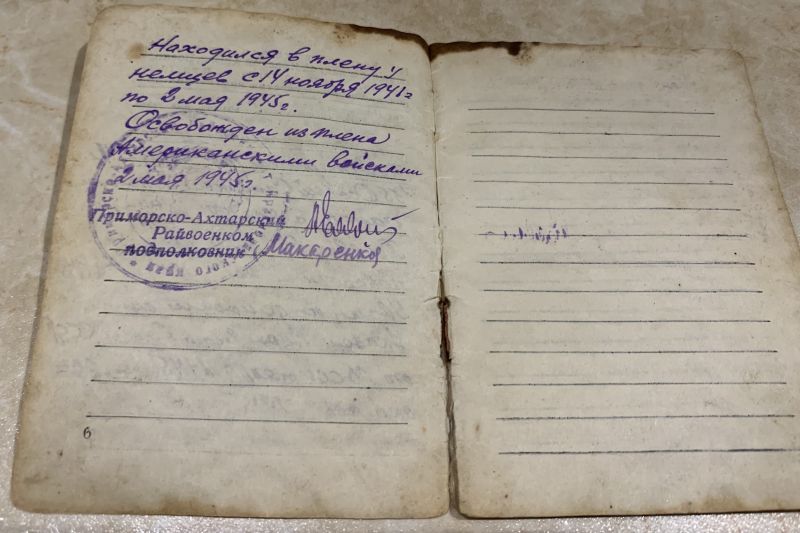 Находился в плену у
немцев с 14 ноября 1941г
по 2 мая 1945г.
Освобожден из плена
Американскими войсками
2 мая 1945г.
Приморско-Ахтарский
Райвоенком
подполковник Макаренко
6